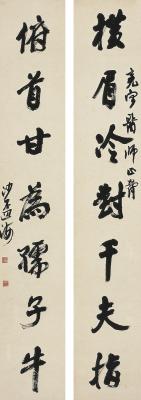 橫眉冷對千夫指
宇醫師正
俯首甘為孺子牛
沙孟海